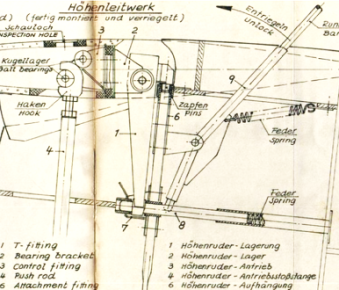 Höhenleitwerk
(fertig montiert und verriegelt)
Schauloch
INSPECTION HOLE
3
2
Entriegeln
unlock
Kugellager
Ball bearings
9
Haken
Hook
Zapfen
Pins
6
1
4
Feder
Spring
Feder
Spring
7
8
1 T-fitting
2 Bearing bracket
3 Control fitting
4 Push rod
6 Attachment fitting
1 Höhenruder-Lagerung
2 Höhenruder-Lager
3 Höhenruder-Antrieb
4 Höhenruder-Antriebsstoßstange
6 Höhenruder-Aufhängung